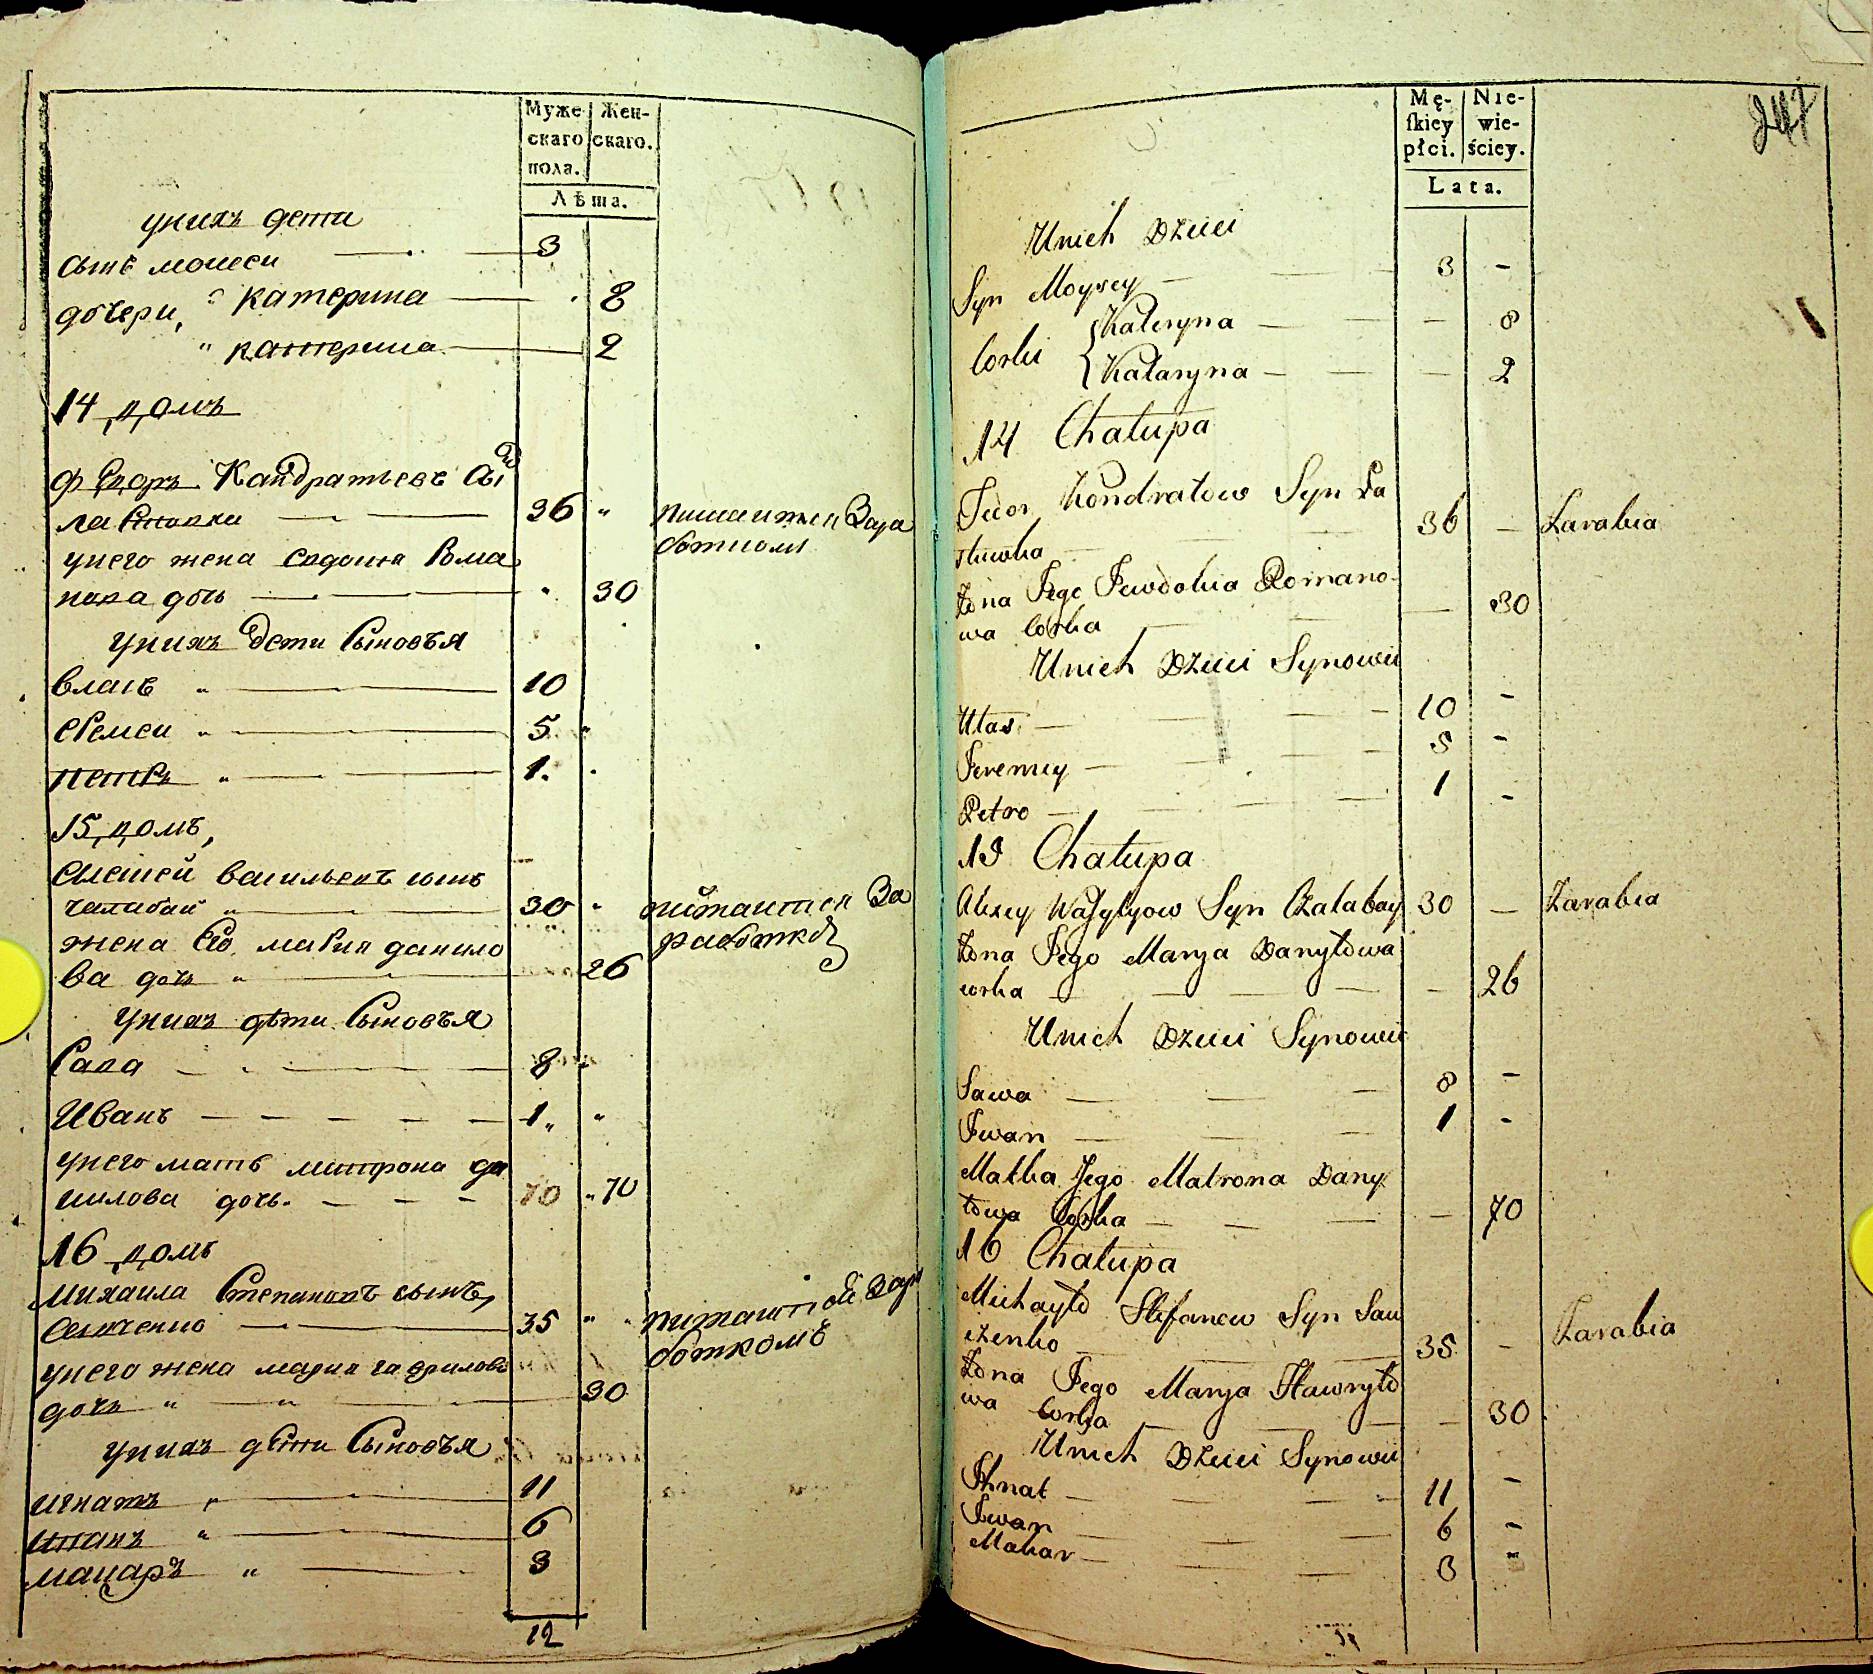 Муже-
скаго
пола.
Жен-
скаго.
Лѣта.
унихъ дети
сынъ моисеи 3
дочери, катерина 8
катерина 2
14 домъ
Федоръ Кандратьевъ Сынъ
36 " питаится Зара
боткомъ
унего жена Евдокия Рома
нова дочь 30
унихъ дети Сыновья
власъ " 10
еремеи " 5 "
петръ " 1.
15 домъ,
алексей васильевъ сынъ
чалабай " 30 " питаится За
работкой
жена его мария данило
ва дочь " 26
унихъ дѣти Сыновья
Сава 8
Иванъ 1 "
унего мать матрона да
нилова дочь. 70 " 70
16 домъ
михаила Степановъ сынъ,
савченко 35 " питаится Зара
боткомъ
унего жена мария гаврилова
дочь " 30
унихъ дети Сыновья
игнатъ 11
иванъ " 6
макаръ " 3
12
Mę-
ſkiey
płci.
Nie-
wie-
ściey.
Lata.
247
Unich Dzieci
Syn Moysey 3 -
Corki Kateryna - 8
Kataryna - 2
14 Chałupa
Fedor Kondratow Syn Ła
36 - Zarabia
Żona Jego Jewdokia Romano-
wa Corka - 30
Unich Dzieci Synowie
Ułas 10 -
Jeremiy 5 -
Petro 1 -
15 Chałupa
Alexey Wasylyow Syn Czalabay 30 - Zarabia
Żona Jego Marya Danyłowa
corka - 26
Unich Dzieci Synowie
Sawa 8 -
Iwan 1 -
Matka Jego Matrona Dany
łowa Corka - 70
16 Chałupa
Michayło Stefanow Syn Saw
czenko 35 - Zarabia
Żona Jego Marya Hawryło
wa Corka - 30
Unich Dzieci Synowie
Ihnat 11 -
Iwan 6 -
Makar 3 -